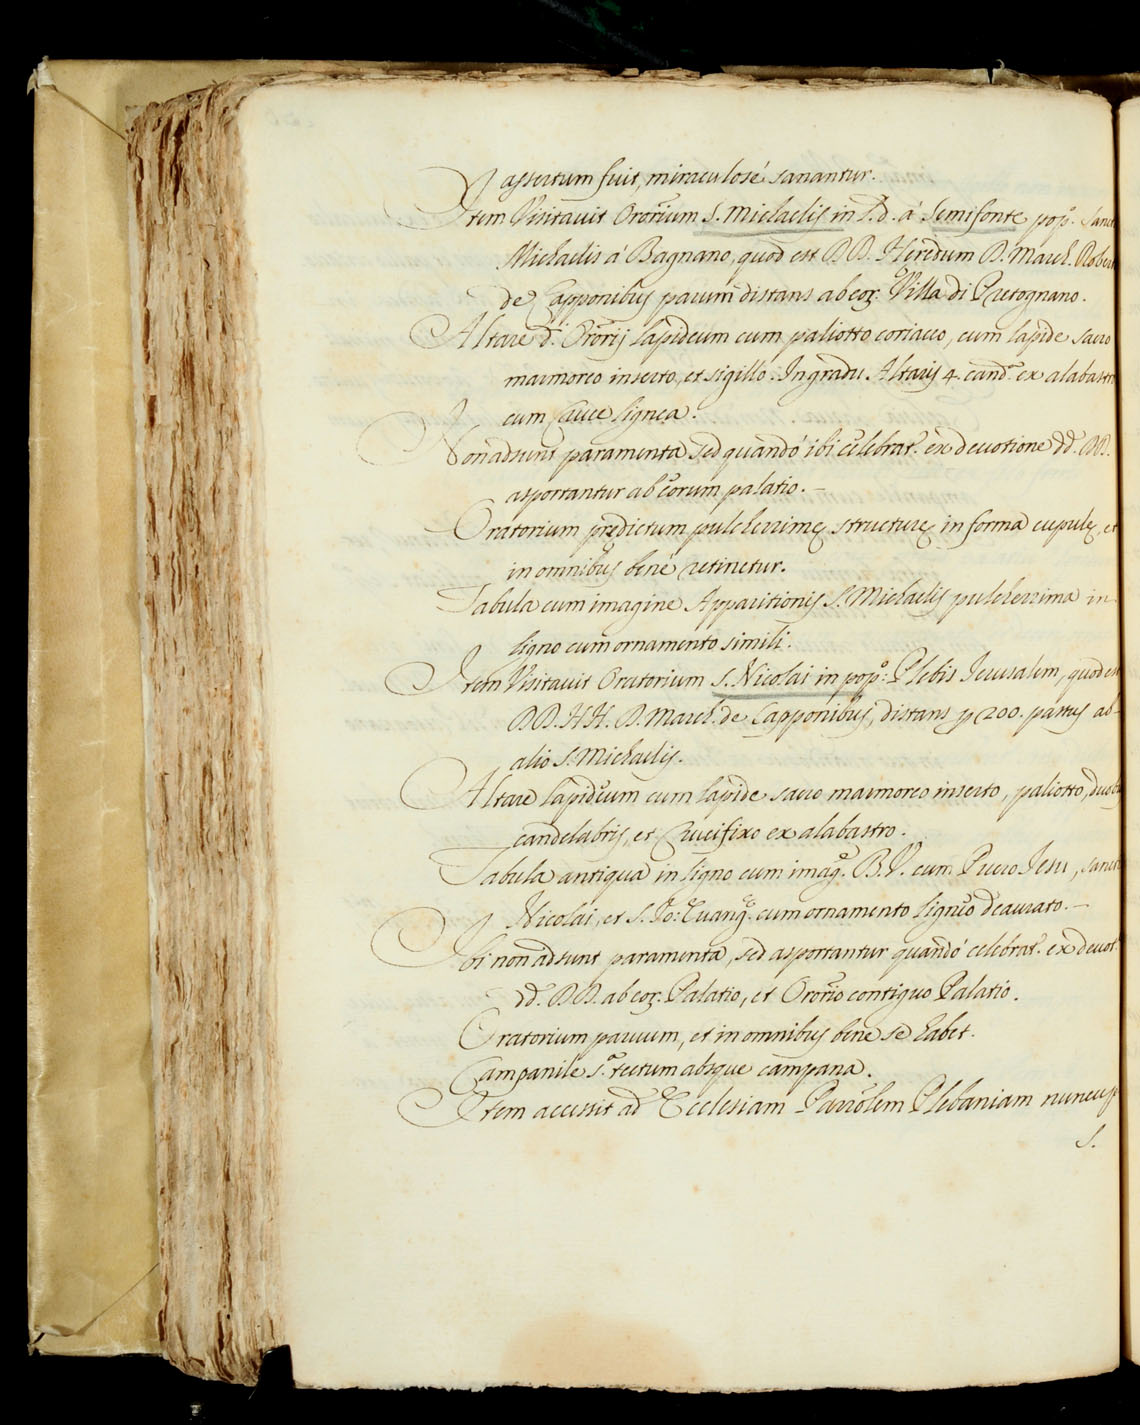 assertum fuit, miraculosé sanantur.
Item Visitavit Orarium S. Michaelis in l.d. á Semifonte pop.º Sanct
Michaelis á Bagnano, quod est DD. Heredum D. March. Rober
de Capponibus parum distans ab eoꝝ: Villa di Pretognano.
Altare d.i Ororij lapideum cum paliotto coriaceo, cum lapide sacro
marmoreo inserto, et sigillo. In gradu Altaris 4. cand.e ex alabastro
cum Cruce lignea.
Non adsunt paramenta sed quando ibi celebrat.r ex devotione dd. DD.
asportantur ab eorum palatio.
Oratorium prędictum pulcherrimę structurę in forma cupulę, et
in omnibus bené retinetur.
Tabula cum imagine Apparitionis S. Michaelis pulcherrima in
ligno cum ornamento simili.
Item Visitavit Oratorium S. Nicolai in pop.º: Plebis Jerusalem, quod est
DD. HH. D. March. de Capponibus, distans p 200. passus ab
alio S. Michaelis.
Altare lapideum cum lapide sacro marmoreo inserto, paliotto, duob
candelabris, et Crucifixo ex alabastro.
Tabula antiqua in ligno cum imag.e B.V. cum Puero Jesu, Sanct
Nicolai, et S. Jo: Evang.e cum ornamento ligneo deaurato.
Ibi non adsunt paramenta, sed asportantur quando celebrat.r ex devot.
dd. DD. ab eoꝝ: Palatio, et Ororio contiguo Palatio.
Oratorium parvum, et in omnibus bene se habet.
Campanile s.a tectum absque campana.
Item accessit ad Ecclesiam Parrolem Plebaniam nuncup
S.